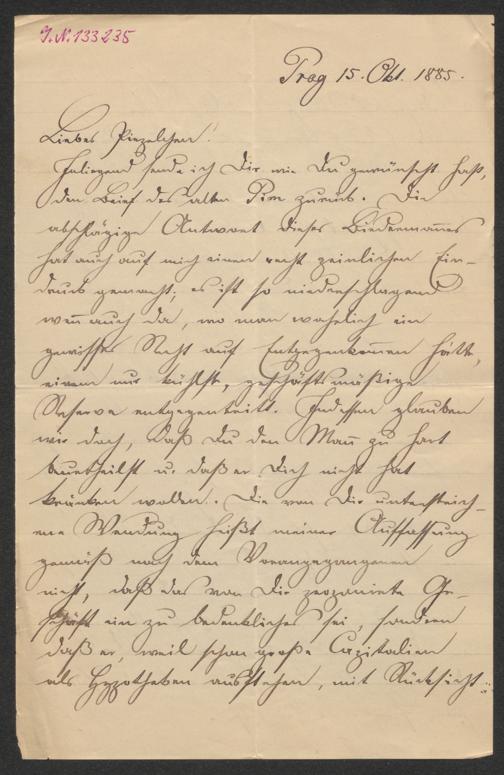 I.N. 133235
Prag 15. Okt. 1885.
Liebes Piezelchen!
Inliegend sende ich Dir, wie Du gewünscht hast,
den Brief des alten Pirn zurück. Die
abschlägige Antwort dieses Biedermannes
hat auch auf mich einen recht peinlichen Ein-
druck gemacht; es ist so niederschlagend
wenn auch da, wo man wahrlich ein
gewisses Recht auf Entgegenkommen hätte,
einem nur kühlste, geschäftsmäßige
Reserve entgegentritt. Indessen glauben
wir doch, daß Du den Mann zu hart
beurtheilst u. daß er Dich nicht hat
kränken wollen. Die von Dir unterstrich-
ene Wendung heißt meiner Auffassung
gemäß nach dem Vorangegangenen
nicht, daß das von Dir proponirte Ge-
schäft ein zu bedenkliches sei, sondern
daß er, weil schon große Capitalien
als Hypotheken ausstehen, mit Rücksicht